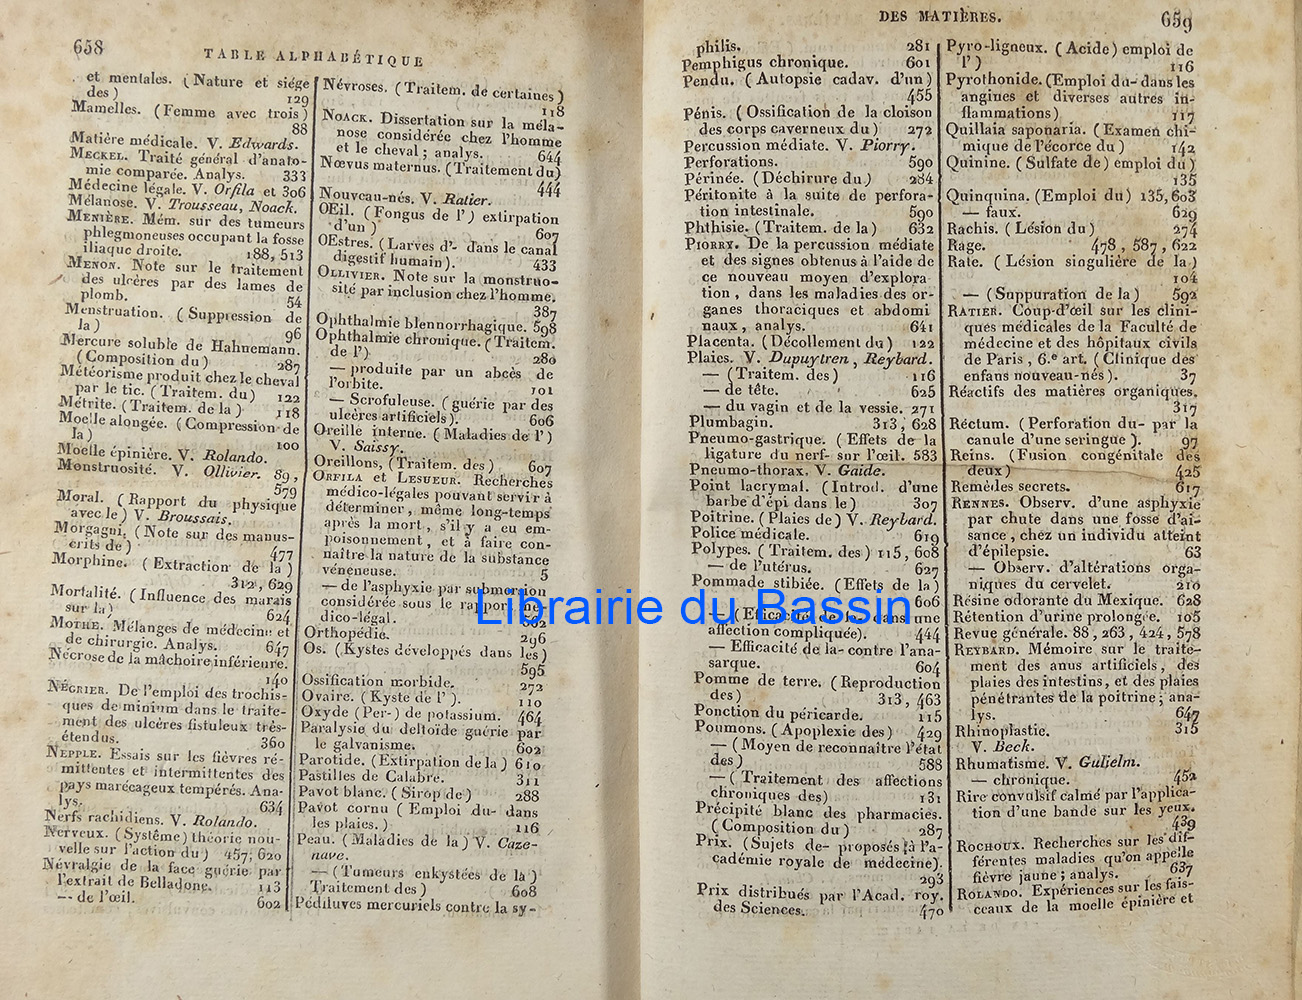 658
TABLE ALPHABÉTIQUE
et mentales. (Nature et siége
des)
129
Mamelles. (Femme avec trois)
88
Matière médicale. V. Edwards.
MECKEL. Traité général d'anato-
mie comparée. Analys. 333
Médecine légale. V. Orfila et 306
Mélanose. V. Trousseau, Noack.
MENIÈRE. Mém. sur des tumeurs
phlegmoneuses occupant la fosse
iliaque droite. 188, 513
MENON. Note sur le traitement
des ulcères par des lames de
plomb. 54
Menstruation. (Suppression de
la) 96
Mercure soluble de Hahnemann.
(Composition du) 287
Météorisme produit chez le cheval
par le tic. (Traitem. du) 122
Métrite. (Traitem. de la) 118
Moelle alongée. (Compression de
la) 100
Moelle épinière. V. Rolando.
Monstruosité. V. Ollivier. 89,
579
Moral. (Rapport du physique
avec le) V. Broussais.
Morgagni. (Note sur des manus-
crits de) 477
Morphine. (Extraction de la)
312, 629
Mortalité. (Influence des marais
sur la) 624
MOTHE. Mélanges de médecine et
de chirurgie. Analys. 647
Nécrose de la mâchoire inférieure.
140
NÉGRIER. De l'emploi des trochis-
ques de minium dans le traite-
ment des ulcères fistuleux très-
étendus. 360
NEPPLE. Essais sur les fièvres ré-
mittentes et intermittentes des
pays marécageux tempérés. Ana-
lys. 634
Nerfs rachidiens. V. Rolando.
Nerveux. (Système) théorie nou-
velle sur l'action du) 457, 620
Névralgie de la face guérie par
l'extrait de Belladone. 113
— de l'œil. 602
Névroses. (Traitem. de certaines)
118
NOACK. Dissertation sur la méla-
nose considérée chez l'homme
et le cheval; analys. 644
Nœvus maternus. (Traitement du)
444
Nouveau-nés. V. Ratier.
OEil. (Fongus de l') extirpation
d'un) 607
OEstres. (Larves d'- dans le canal
digestif humain). 433
OLLIVIER. Note sur la monstruo-
sité par inclusion chez l'homme.
387
Ophthalmie blennorrhagique. 598
Ophthalmie chronique. (Traitem.
de l') 280
— produite par un abcès de
l'orbite. 101
— Scrofuleuse. (guérie par des
ulcères artificiels). 606
Oreille interne. (Maladies de l')
V. Saissy.
Oreillons, (Traitem. des) 607
ORFILA et LESUEUR. Recherches
médico-légales pouvant servir à
déterminer, même long-temps
après la mort, s'il y a eu em-
poisonnement, et à faire con-
naître la nature de la substance
vénéneuse. 5
— de l'asphyxie par submersion
considérée sous le rapport mé-
dico-légal. 662
Orthopédie. 296
Os. (Kystes développés dans les)
595
Ossification morbide. 272
Ovaire. (Kyste de l') 110
Oxyde (Per-) de potassium. 464
Paralysie du deltoïde guérie par
le galvanisme. 602
Parotide. (Extirpation de la) 610
Pastilles de Calabre. 311
Pavot blanc. (Sirop de) 288
Pavot cornu (Emploi du- dans
les plaies.) 116
Peau. (Maladies de la) V. Caze-
nave.
— (Tumeurs enkystées de la)
Traitement des) 608
Pédiluves mercuriels contre la sy-
DES MATIÈRES.
659
philis. 281
Pemphigus chronique. 601
Pendu. (Autopsie cadav. d'un)
455
Pénis. (Ossification de la cloison
des corps caverneux du) 272
Percussion médiate. V. Piorry.
Perforations. 590
Périnée. (Déchirure du) 284
Péritonite à la suite de perfora-
tion intestinale. 590
Phthisie. (Traitem. de la) 632
PIORRY. De la percussion médiate
et des signes obtenus à l'aide de
ce nouveau moyen d'explora
tion, dans les maladies des or-
ganes thoraciques et abdomi
naux, analys. 641
Placenta. (Décollement du) 122
Plaies. V. Dupuytren, Reybard.
— (Traitem. des) 116
— de tête. 625
— du vagin et de la vessie. 271
Plumbagin. 313, 628
Pneumo-gastrique. (Effets de la
ligature du nerf- sur l'œil. 583
Pneumo-thorax. V. Gaide.
Point lacrymal. (Introd. d'une
barbe d'épi dans le) 307
Poitrine. (Plaies de) V. Reybard.
Police médicale. 619
Polypes. (Traitem. des) 115, 608
— de l'utérus. 627
Pommade stibiée. (Effets de la)
606
— (Efficacité de la- dans une
affection compliquée). 444
— Efficacité de la- contre l'ana-
sarque. 604
Pomme de terre. (Reproduction
des) 313, 463
Ponction du péricarde. 115
Poumons. (Apoplexie des) 429
— (Moyen de reconnaître l'état
des) 588
— (Traitement des affections
chroniques des) 131
Précipité blanc des pharmacies.
(Composition du) 287
Prix. (Sujets de- proposés à l'a-
cadémie royale de médecine).
293
Prix distribués par l'Acad. roy.
des Sciences. 470
Pyro-ligneux. (Acide) emploi de
l') 116
Pyrothonide. (Emploi du- dans les
angines et diverses autres in-
flammations) 117
Quillaia saponaria. (Examen chi-
mique de l'écorce du) 142
Quinine. (Sulfate de) emploi du)
135
Quinquina. (Emploi du) 135, 603
— faux. 629
Rachis. (Lésion du) 274
Rage. 478, 587, 622
Rate. (Lésion singulière de la)
104
— (Suppuration de la) 592
RATIER. Coup-d'œil sur les clini-
ques médicales de la Faculté de
médecine et des hôpitaux civils
de Paris, 6.e art. (Clinique des
enfans nouveau-nés). 37
Réactifs des matières organiques.
317
Réctum. (Perforation du- par la
canule d'une seringue). 97
Reins. (Fusion congénitale des
deux) 425
Remèdes secrets. 617
RENNES. Observ. d'une asphyxie
par chute dans une fosse d'ai-
sance, chez un individu atteint
d'épilepsie. 63
— Observ. d'altérations orga-
niques du cervelet. 210
Résine odorante du Mexique. 628
Rétention d'urine prolongée. 105
Revue générale. 88, 263, 424, 578
REYBARD. Mémoire sur le traite-
ment des anus artificiels, des
plaies des intestins, et des plaies
pénétrantes de la poitrine; ana-
lys. 647
Rhinoplastie. 315
V. Beck.
Rhumatisme. V. Gulielm.
— chronique. 452
Rire convulsif calmé par l'applica-
tion d'une bande sur les yeux.
439
ROCHOUX. Recherches sur les dif-
férentes maladies qu'on appelle
fièvre jaune; analys. 637
ROLANDO. Expériences sur les fais-
ceaux de la moelle épinière et
Librairie du Bassin